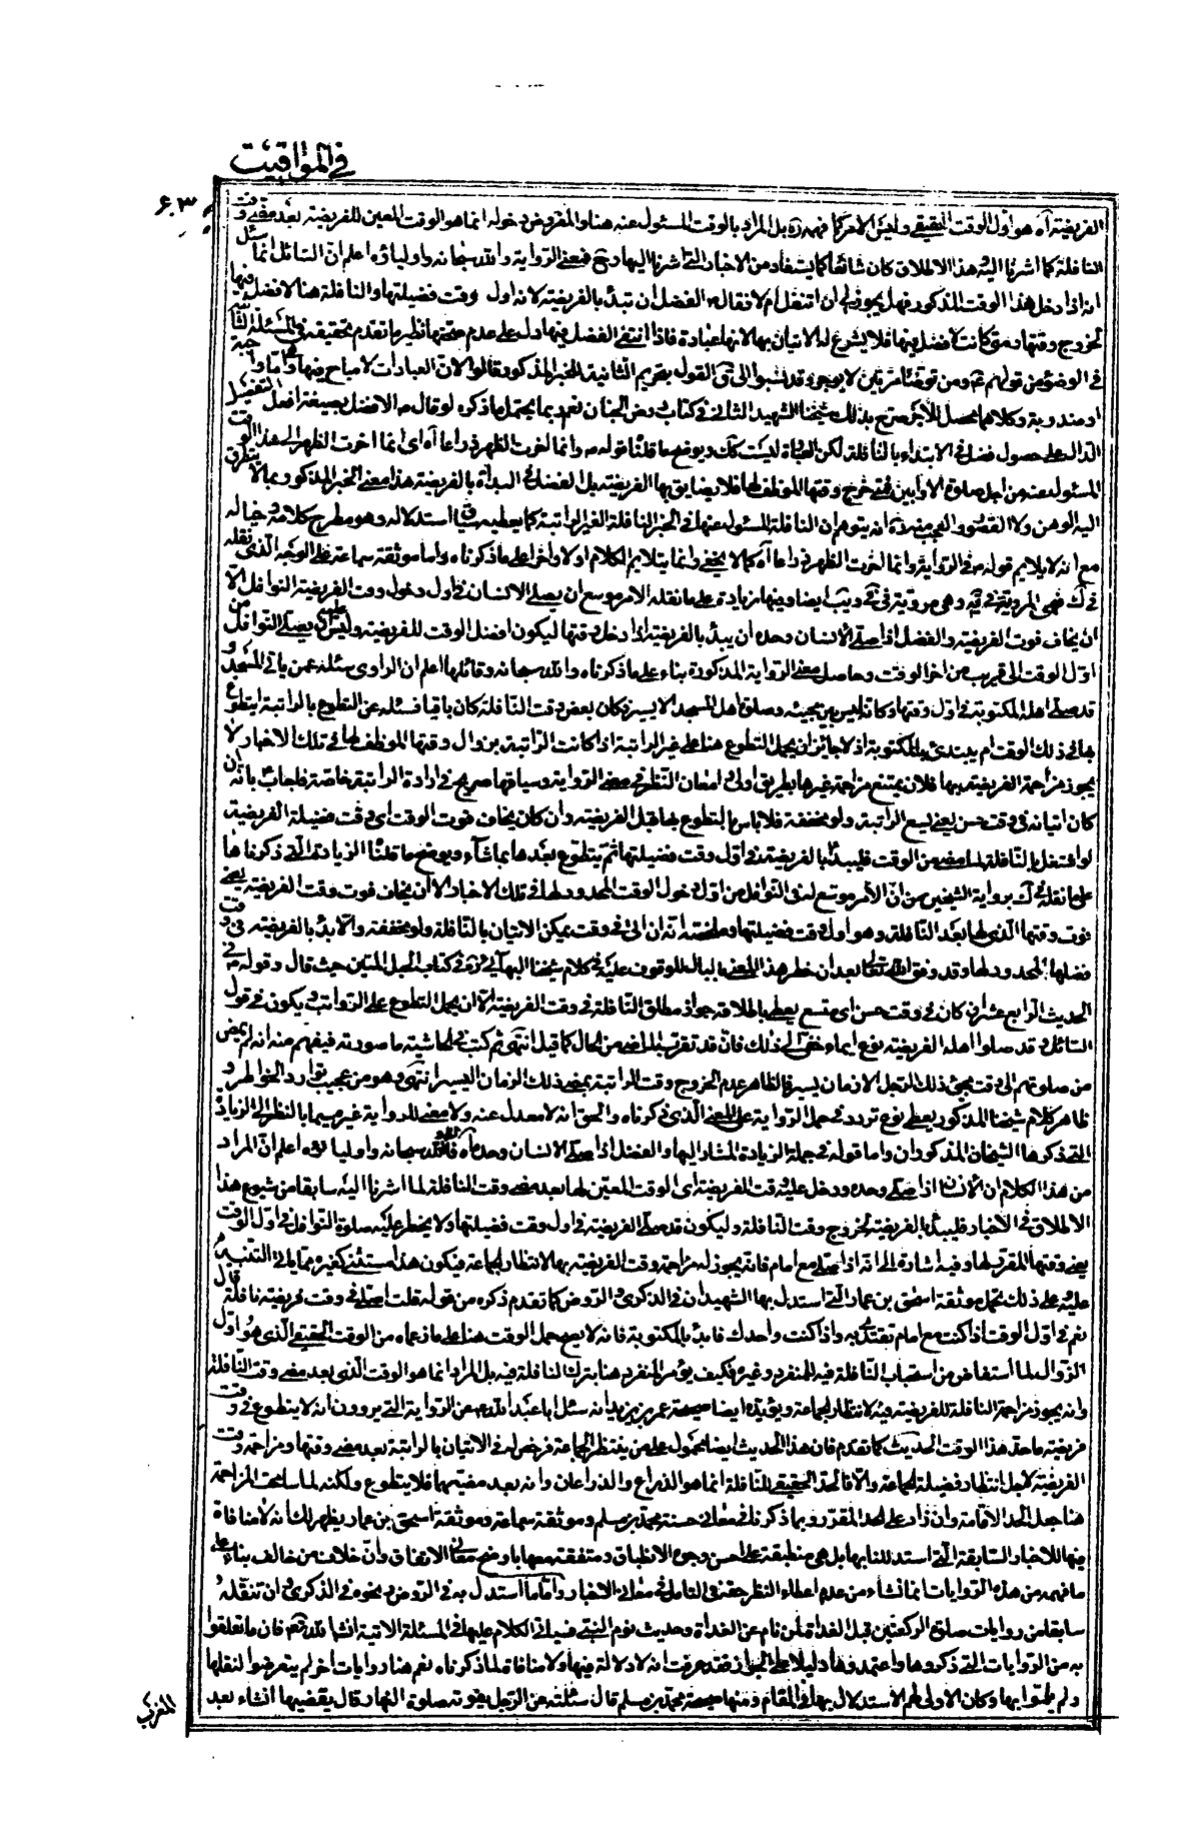 في المواقيت
٦٠٣
الفريضة آه هو اول الوقت الحقيقي وليس الامر كما فهمه ره بل المراد بالوقت المسئول عنه هنا والمفروض دخوله انما هو الوقت المعين للفريضة بعد مضي وقت
النافلة كما اشرنا اليه وهذا الاطلاق كان شائعا كما يستفاد من الاخبار التي اشرنا اليها وح فمعنى الرواية والله سبحانه واولياؤه اعلم ان السائل انما سئل
انه اذا دخل هذا الوقت المذكور فهل يجوز لي ان اتنفل ام لا فقال الفضل ان تبدأ بالفريضة لانه اول وقت فضيلتها والنافلة هنا لا فضل فيها
لخروج وقتها ومتى كانت لا فضل فيها فلا يشرع له الاتيان بها لانها عبادة فاذا انتفى الفضل فيها دل على عدم صحتها نظير ما تقدم تحقيقه في المسئلة
في الوضوء من قولهم ومن توضأ مرتين لا يوجر وقد نسبوا الى ق القول بتحريم الثانية للخبر المذكور وقالوا لان العبادات لا مباح فيها واما واجبة
او مندوبة وكلاهما يحصل للاجر صرح بذلك شيخنا الشهيد الثاني في كتاب روض الجنان نعم ربما يحتمل ما ذكره لو قال الافضل بصيغة افعل التفضيل
الدال على حصول فضل في الابتداء بالنافلة لكن العبارة ليست كك ويوضح ما قلنا قوله وانما اخرت الظهر ذراعا آه اي انما اخرت الظهر الى هذا الوقت
المسئول عنه من اجل صلوة الاوابين فمتى خرج وقتها الموظف لها فلا يضايق بها الفريضة بل الفضل في البدأة بالفريضة هذا معنى الخبر المذكور مما لا يتطرق
اليه الوهن ولا القصور والعجب منه انه يتوهم ان النافلة المسئول عنها في الخبر النافلة الغير الراتبة كما يعطيه استدلاله وهو مطرح كلامه وخياله
مع انه لا يلايم قوله في الرواية وانما اخرت الظهر ذراعا آه كما لا يخفى وانما يتلايم الكلام اولا واخرا على ما ذكرناه واما موثقة سماعة على الوجه الذي نقله
في ك فهي المروية في يه وهي مروية في في ويب ايضا وفيها زيادة على ما نقله الامر موسع ان يصلي الانسان في اول دخول وقت الفريضة النوافل الا
ان يخاف فوت الفريضة والفضل اذا صلى الانسان وحده ان يبدأ بالفريضة اذا دخل وقتها ليكون افضل الوقت للفريضة وليس بمحظور عليه ان يصلي النوافل من
اول الوقت الى قريب من اخر الوقت وحاصل معنى الرواية المذكورة بناء على ما ذكرناه والله سبحانه وقائلها اعلم ان الراوي سئله عمن ياتي المسجد و
قد صلى اهله المكتوبة في اول وقتها وكانه ليس بين مجيئه وصلوة اهل المسجد الا يسير وكان بعض وقت النافلة كان باقيا فسئله عن التطوع بالراتبة ايتطوع
بها في ذلك الوقت ام يبتدئ بالمكتوبة اذ لا جائز ان يحمل التطوع هنا على غير الراتبة اذا كانت الراتبة بزوال وقتها الموظف لها في تلك الاخبار لا
يجوز مزاحمة الفريضة بها فلان يمتنع مزاحمة غيرها بطريق اولى وامعان النظر في معنى الرواية وسياقها صريح في ارادة الراتبة خاصة فاجاب بانه ان
كان اتيانه في وقت حسن يعني يسع الراتبة ولو مخففة فلا باس بالتطوع بها قبل الفريضة وان كان يخاف فوت الوقت اي وقت فضيلة الفريضة
لو اشتغل بالنافلة لما مضى من الوقت فليبدأ بالفريضة في اول وقت فضيلتها ثم يتطوع بعدها بما شاء ويوضح ما قلنا الزيادة التي ذكرناها
على ما نقله في ك برواية الشيخين من ان الامر موسع له في النوافل من اول دخول الوقت المحدود لها في تلك الاخبار الا ان يخاف فوت وقت الفريضة يعني
فوت وقتها الذي لها بعد النافلة وهو اول وقت فضيلتها وملخصه انه ان اتى في وقت يمكن الاتيان بالنافلة ولو مخففة والا بدأ بالفريضة في وقت
فضلها المحدود لها وقد وفق الله تعالى بعد ان خطر هذا المعنى بالبال للوقوف عليه في كلام شيخنا البهائي ره في كتاب الحبل المتين حيث قال وقوله في
الحديث الرابع عشر ان كان في وقت حسن اي متسع يعطي باطلاقه جواز مطلق النافلة في وقت الفريضة الا ان يحمل التطوع على الرواتب ويكون في قول
السائل وقد صلوا اهله الفريضة نوع ايماء خفي الى ذلك فان قد تقرب الماضي من الحال كما قيل انتهى ثم كتب في الحاشية ما صورته فيفهم منه انه لم يمض
من صلوتهم الى وقت مجئ ذلك الرجل الا زمان يسير فالظاهر عدم الخروج وقت الراتبة بمضي ذلك الزمان اليسير انتهى وهو من عجيب توارد الخواطر و
ظاهر كلام شيخنا المذكور يعطي نوع تردد في حمل الرواية على المعنى الذي ذكرناه والحق انه لا معدل عنه ولا معنى للرواية غيره سيما بالنظر الى الزيادة
التي ذكرها الشيخان المذكوران واما قوله في جملة الزيادة المشار اليها والفضل اذا صلى الانسان وحده آه فالله سبحانه واولياؤه اعلم ان المراد
من هذا الكلام ان الانسان اذا صلى وحده ودخل عليه وقت الفريضة اي الوقت المعين لها بعد مضي وقت النافلة لما اشرنا اليه سابقا من شيوع هذا
الاطلاق في الاخبار فليبدأ بالفريضة لخروج وقت النافلة وليكون قد صلى الفريضة في اول وقت فضيلتها ولا يحظر عليه صلوة النوافل في اول الوقت
يعني وقتها المقرر لها وفيه اشارة الى انه اذا صلى مع امام فانه يجوز له مزاحمة وقت الفريضة بها لانتظار الجماعة فيكون هذا مستثنى كغيره مما ياتي التنبيه
عليه وعلى ذلك يحمل موثقة اسحق بن عمار التي استدل بها الشهيدان في الذكرى والروض كما تقدم ذكره من قوله قلت اصلي في وقت فريضة نافلة قال
نعم في اول الوقت اذا كنت مع امام تقتدي به واذا كنت وحدك فابدأ بالمكتوبة فانه لا يصح حمل الوقت هنا على ما زعماه من الوقت الحقيقي الذي هو اول
الزوال لما استفاض من استحباب النافلة فيه للمنفرد وغيره فكيف يؤمر المنفرد هنا بترك النافلة فيه بل المراد انما هو الوقت الذي بعد مضي وقت النافلة
وانه يجوز مزاحمة النافلة للفريضة فيه لانتظار الجماعة ويؤيده ايضا صحيحة عمر بن يزيد انه سئل ابا عبد الله عن الرواية التي يروون انه لا يتطوع في وقت
فريضة ما حد هذا الوقت الحديث كما تقدم فان هذا الحديث ايضا محمول على من ينتظر الجماعة فرخص له في الاتيان بالراتبة بعد مضي وقتها ومزاحمة وقت
الفريضة لاجل انتظار فضيلة الجماعة والا فالحد الحقيقي للنافلة انما هو الذراع والذراعان وانه بعد مضيهما فلا يتطوع ولكنه لما ساغت المزاحمة
هنا جعل الحد الاقامة وان زاد على الحد المقرر وبما ذكرنا في معاني حسنة محمد بن مسلم وموثقة سماعة وموثقة اسحق بن عمار يظهر لك انه لا منافاة
فيها للاخبار السابقة التي استدللنا بها بل هي منطبقة على احسن وجوه الانطباق ومتفقة معها باوضح معاني الاتفاق وان خلاف من خالف بناء على
ما فهمه من هذه الروايات انما نشاء من عدم اعطاء النظر حقه في التامل في معاني الاخبار واما ما استدل به في الروض ونحوه في الذكرى وان تنقله
سابقا من روايات صلوة الركعتين قبل الغداة لمن نام عن الغداة وحديث نوم النبي فسياتي الكلام عليها في المسئلة الاتية انشاء الله تعم فان ما تعلقوا
به من الروايات التي ذكروها واعتمدوها دليلا على الجواز فقد عرفت انه لا دلالة فيها ولا منافاة لما ذكرناه نعم هنا روايات اخر لم يتعرضوا لنقلها
ولم يلموا بها وكان الاولى لهم الاستدلال بها في المقام ومنها صحيحة محمد بن مسلم قال سئلته عن الرجل يفوته صلوة النهار قال يقضيها انشاء بعد
المغرب